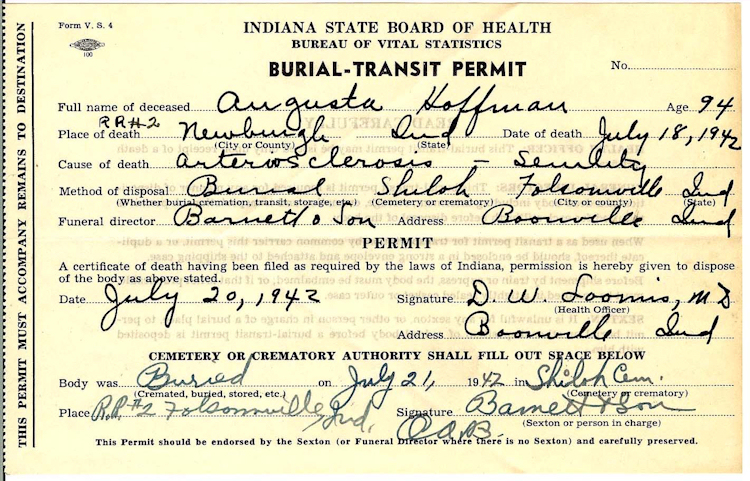 Form V. S. 4
100
INDIANA STATE BOARD OF HEALTH
BUREAU OF VITAL STATISTICS
BURIAL-TRANSIT PERMIT
No.
Full name of deceased Augusta Hoffman Age 94
RR#2
Place of death Newburgh Ind Date of death July 18, 1942
(City or County) (State)
Cause of death arteriosclerosis – Senility
Method of disposal Buried Shiloh Folsomville Ind
(Whether burial, cremation, transit, storage, etc.) (Cemetery or crematory) (City or county) (State)
Funeral director Barnett & Son Address Boonville Ind
PERMIT
A certificate of death having been filed as required by the laws of Indiana, permission is hereby given to dispose
of the body as above stated.
Date July 20, 1942 Signature D. W. Loomis, M D
(Health Officer)
Address Boonville Ind
CEMETERY OR CREMATORY AUTHORITY SHALL FILL OUT SPACE BELOW
Body was Buried on July 21, 1942 in Shiloh Cem.
(Cremated, buried, stored, etc.) (Cemetery or crematory)
Place R.R. #2 Folsomville, Ind. Signature Barnett & Son
(Sexton or person in charge)
This Permit should be endorsed by the Sexton (or Funeral Director where there is no Sexton) and carefully preserved.
THIS PERMIT MUST ACCOMPANY REMAINS TO DESTINATION